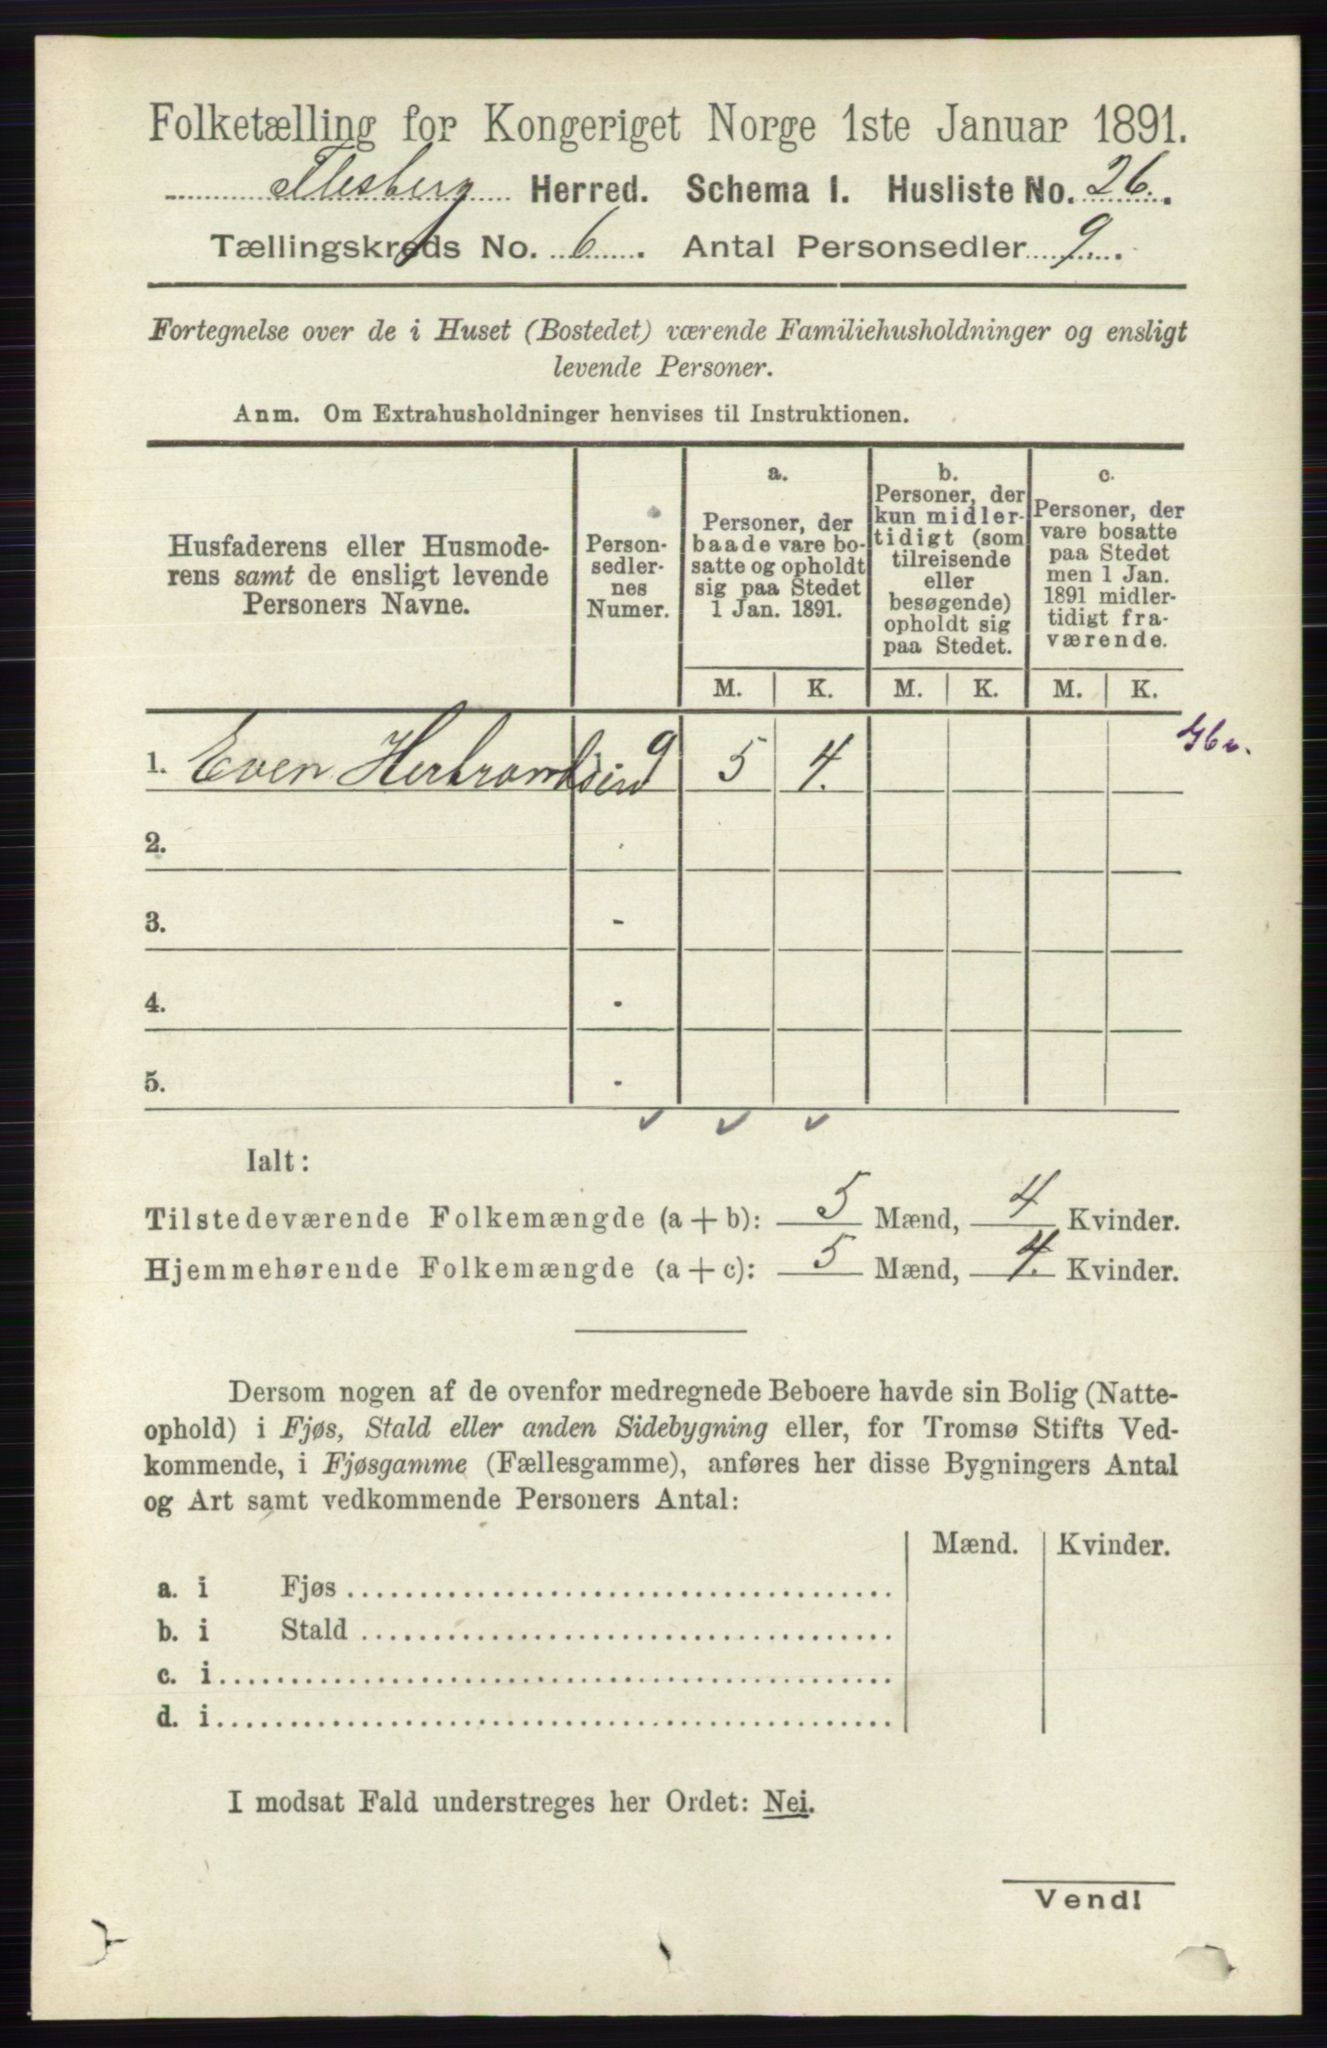 Folketælling for Kongeriget Norge 1ste Januar 1891.
Flesberg Herred. Schema I. Husliste No. 26.
Tællingskreds No. 6. Antal Personsedler 9.
Fortegnelse over de i Huset (Bostedet) værende Familiehusholdninger og ensligt
levende Personer.
Anm. Om Extrahusholdninger henvises til Instruktionen.
Husfaderens eller Husmode-
rens samt de ensligt levende
Personers Navne.
Person-
sedler-
nes
Numer.
a.
Personer, der
baade vare bo-
satte og opholdt
sig paa Stedet
1 Jan. 1891.
b.
Personer, der
kun midler-
tidigt (som
tilreisende
eller
besøgende)
opholdt sig
paa Stedet.
c.
Personer, der
vare bosatte
paa Stedet
men 1 Jan.
1891 midler-
tidigt fra-
værende.
M. K. M. K. M. K.
1. Even Herbrandsen 9 5 4. Gbr.
2.
3. -
4. -
5. -
Ialt:
Tilstedeværende Folkemængde (a + b): 5 Mænd, 4 Kvinder.
Hjemmehørende Folkemængde (a + c): 5 Mænd, 4. Kvinder.
Dersom nogen af de ovenfor medregnede Beboere havde sin Bolig (Natte-
ophold) i Fjøs, Stald eller anden Sidebygning eller, for Tromsø Stifts Ved-
kommende, i Fjøsgamme (Fællesgamme), anføres her disse Bygningers Antal
og Art samt vedkommende Personers Antal:
Mænd. Kvinder.
a. i Fjøs
b. i Stald
c. i
d. i
I modsat Fald understreges her Ordet: Nei.
Vend!